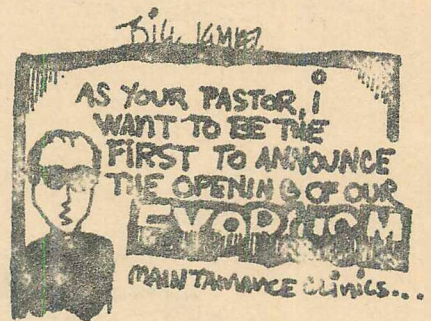 BILL
AS YOUR PASTOR, i
WANT TO BE THE
FIRST TO ANNOUNCE
THE OPENING OF OUR
MAINTAINANCE CLINICS...